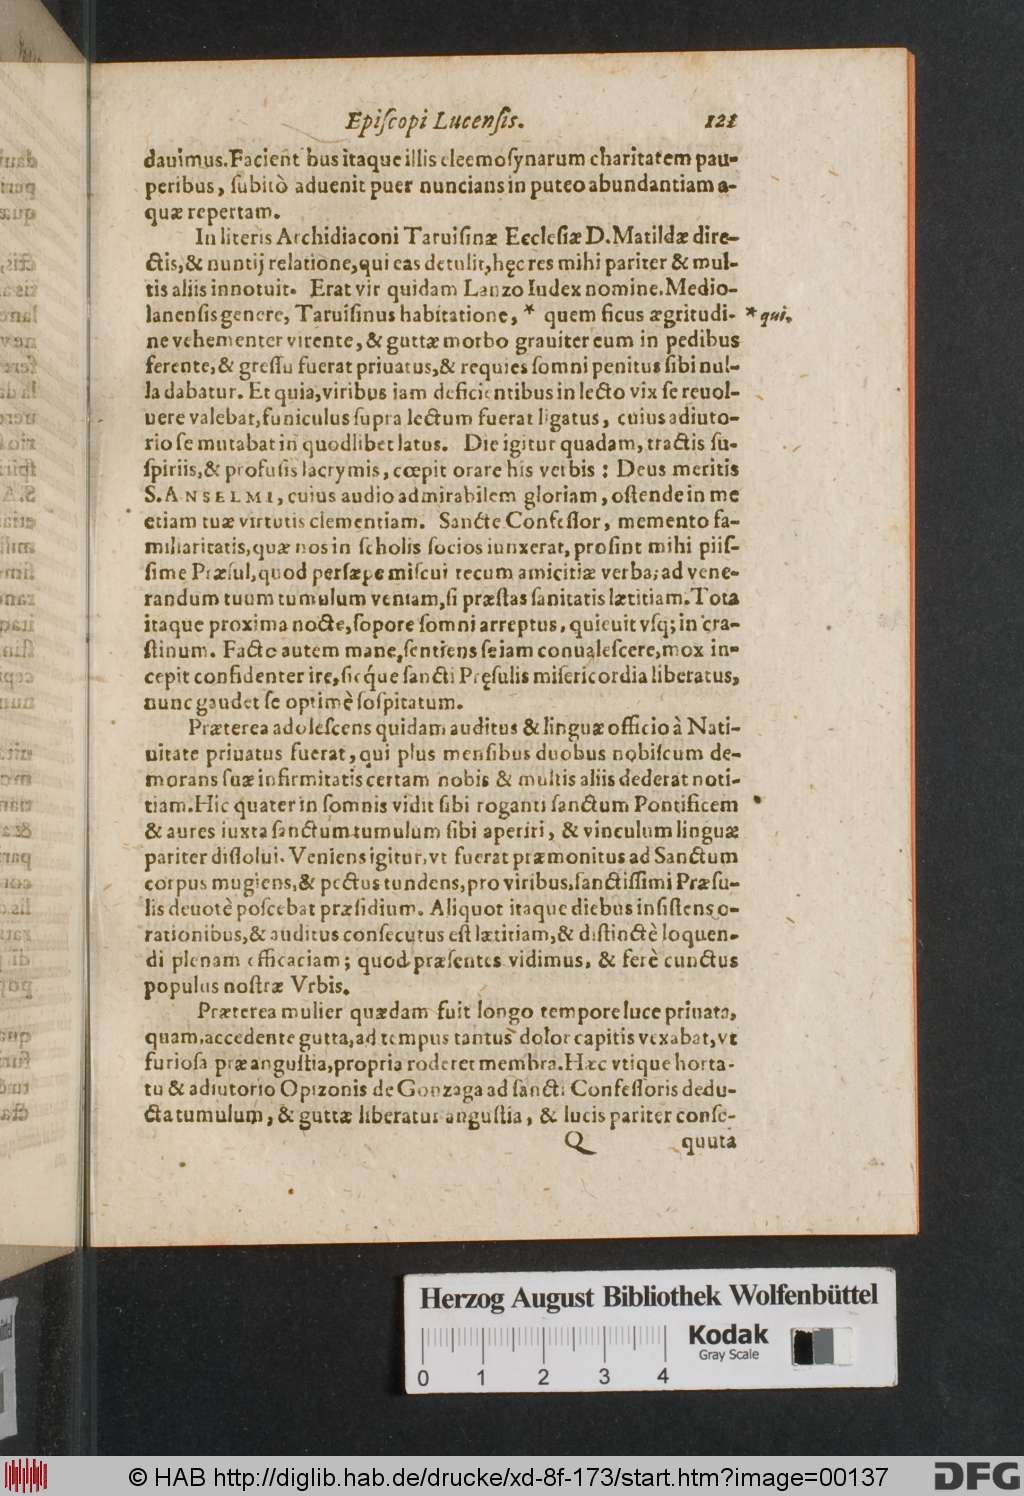 Epiſcopi Lucenſis. 121
dauimus. Facient bus itaque illis eleemoſynarum charitatem pau-
peribus, ſubitò aduenit puer nuncians in puteo abundantiam a-
quæ repertam.
In literis Archidiaconi Taruiſinæ Eccleſiæ D. Matildæ dire-
ctis, & nuntij relatione, qui eas detulit, hęc res mihi pariter & mul-
tis aliis innotuit. Erat vir quidam Lanzo Iudex nomine, Medio-
lanenſis genere, Taruiſinus habitatione, * quem ficus ægritudi- * qui.
ne vehementer virente, & guttæ morbo grauiter eum in pedibus
ferente, & greſſu fuerat priuatus, & requies ſomni penitus ſibi nul-
la dabatur. Et quia, viribus iam deficientibus in lecto vix ſe reuol-
uere valebat, funiculus ſupra lectum fuerat ligatus, cuius adiuto-
rio ſe mutabat in quodlibet latus. Die igitur quadam, tractis ſu-
ſpiriis, & profuſis lacrymis, cœpit orare his verbis: Deus meritis
S. ANSELMI, cuius audio admirabilem gloriam, oſtende in me
etiam tuæ virtutis clementiam. Sancte Confeſſor, memento fa-
miliaritatis, quæ nos in ſcholis ſocios iunxerat, proſint mihi piiſ-
ſime Præſul, quod perſæpe miſcui tecum amicitiæ verba; ad vene-
randum tuum tumulum veniam, ſi præſtas ſanitatis lætitiam. Tota
itaque proxima nocte, ſopore ſomni arreptus, quieuit vſq; in cra-
ſtinum. Facto autem mane, ſentiens ſe iam conualeſcere, mox in-
cepit confidenter ire, ſicq́ue ſancti Pręſulis miſericordia liberatus,
nunc gaudet ſe optimè ſoſpitatum.
Præterea adoleſcens quidam auditus & linguæ officio à Nati-
uitate priuatus fuerat, qui plus menſibus duobus nobiſcum de-
morans ſuæ infirmitatis certam nobis & multis aliis dederat noti-
tiam. Hic quater in ſomnis vidit ſibi roganti ſanctum Pontificem
& aures iuxta ſanctum tumulum ſibi aperiri, & vinculum linguæ
pariter diſſolui. Veniens igitur, vt fuerat præmonitus ad Sanctum
corpus mugiens, & pectus tundens, pro viribus, ſanctiſſimi Præſu-
lis deuotè poſcebat præſidium. Aliquot itaque diebus inſiſtens o-
rationibus, & auditus conſecutus eſt lætitiam, & diſtinctè loquen-
di plenam efficaciam; quod præſentes vidimus, & ferè cunctus
populus noſtræ Vrbis.
Præterea mulier quædam fuit longo tempore luce priuata,
quam, accedente gutta, ad tempus tantus dolor capitis vexabat, vt
furioſa præ anguſtia, propria roderet membra. Hæc vtique horta-
tu & adiutorio Opizonis de Gonzaga ad ſancti Confeſſoris dedu-
cta tumulum, & guttæ liberatur anguſtia, & lucis pariter conſe-
Q quuta
Herzog August Bibliothek Wolfenbüttel
Kodak
Gray Scale
0 1 2 3 4
© HAB http://diglib.hab.de/drucke/xd-8f-173/start.htm?image=00137
DFG